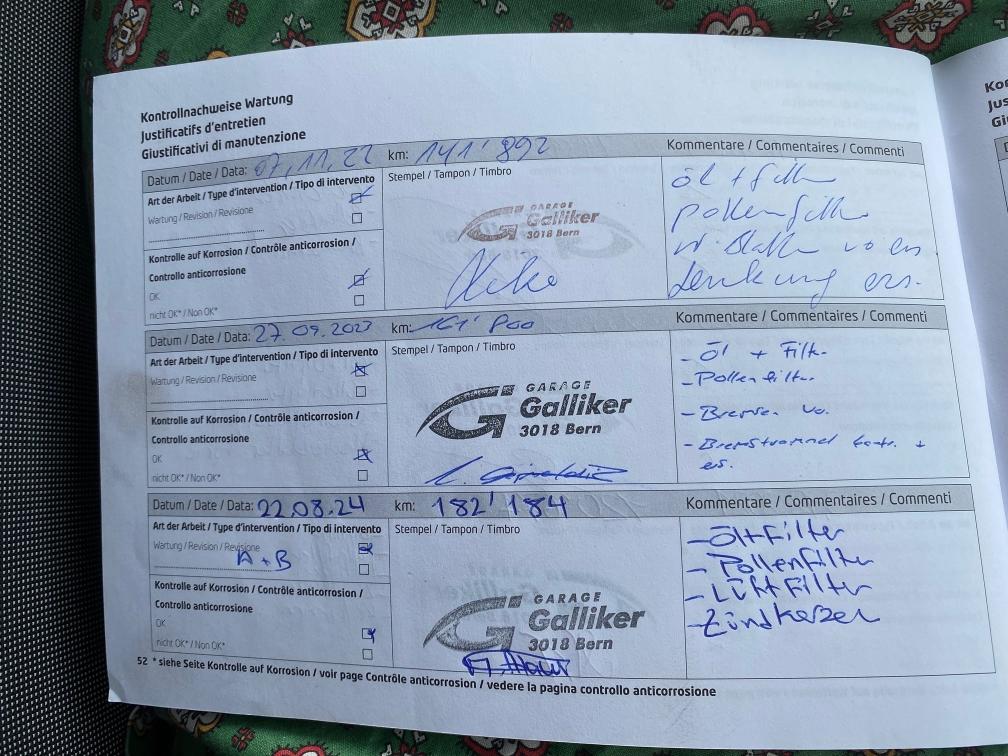 Kontrollnachweise Wartung
Justificatifs d'entretien
Giustificativi di manutenzione
Datum / Date / Data: 07.11.22 km: 141'892 Kommentare / Commentaires / Commenti
Art der Arbeit / Type d'intervention / Tipo di intervento
Wartung / Revision / Revisione
Kontrolle auf Korrosion / Contrôle anticorrosion /
Controllo anticorrosione
OK
nicht OK* / Non OK*
Stempel / Tampon / Timbro
GARAGE
Galliker
3018 Bern
Öl + filter
pollenfilter
W. Blatt vo ers
Lenkung ers.
Datum / Date / Data: 27.09.2023 km: Kommentare / Commentaires / Commenti
Art der Arbeit / Type d'intervention / Tipo di intervento
Wartung / Revision / Revisione
Kontrolle auf Korrosion / Contrôle anticorrosion /
Controllo anticorrosione
OK
nicht OK* / Non OK*
Stempel / Tampon / Timbro
GARAGE
Galliker
3018 Bern
- Öl + Filter
- Pollenfilter
- Bremsen vo.
- Bremstrommel kontr. +
ers.
Datum / Date / Data: 22.08.24 km: 182'184 Kommentare / Commentaires / Commenti
Art der Arbeit / Type d'intervention / Tipo di intervento
Wartung / Revision / Revisione
A + B
Kontrolle auf Korrosion / Contrôle anticorrosion /
Controllo anticorrosione
OK
nicht OK* / Non OK*
Stempel / Tampon / Timbro
GARAGE
Galliker
3018 Bern
- Öl+Filter
- Pollenfilter
- Luftfilter
- Zündkerzen
52 * siehe Seite Kontrolle auf Korrosion / voir page Contrôle anticorrosion / vedere la pagina controllo anticorrosione